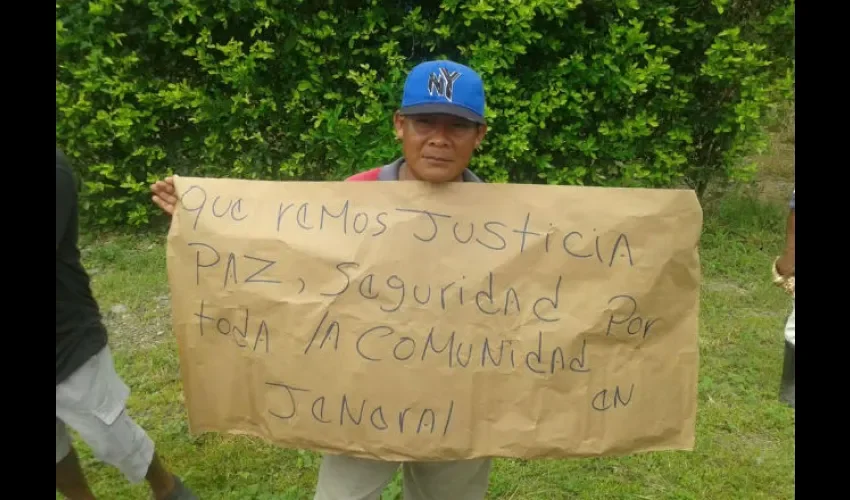 NY
Que remos Justicia
Paz, Seguridad Por
toda la comunidad
en
Jeneral